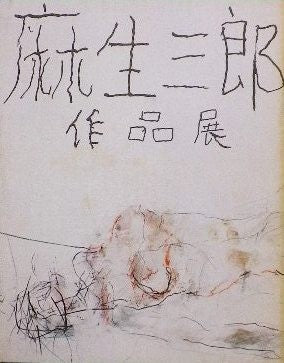 麻生三郎
作品展